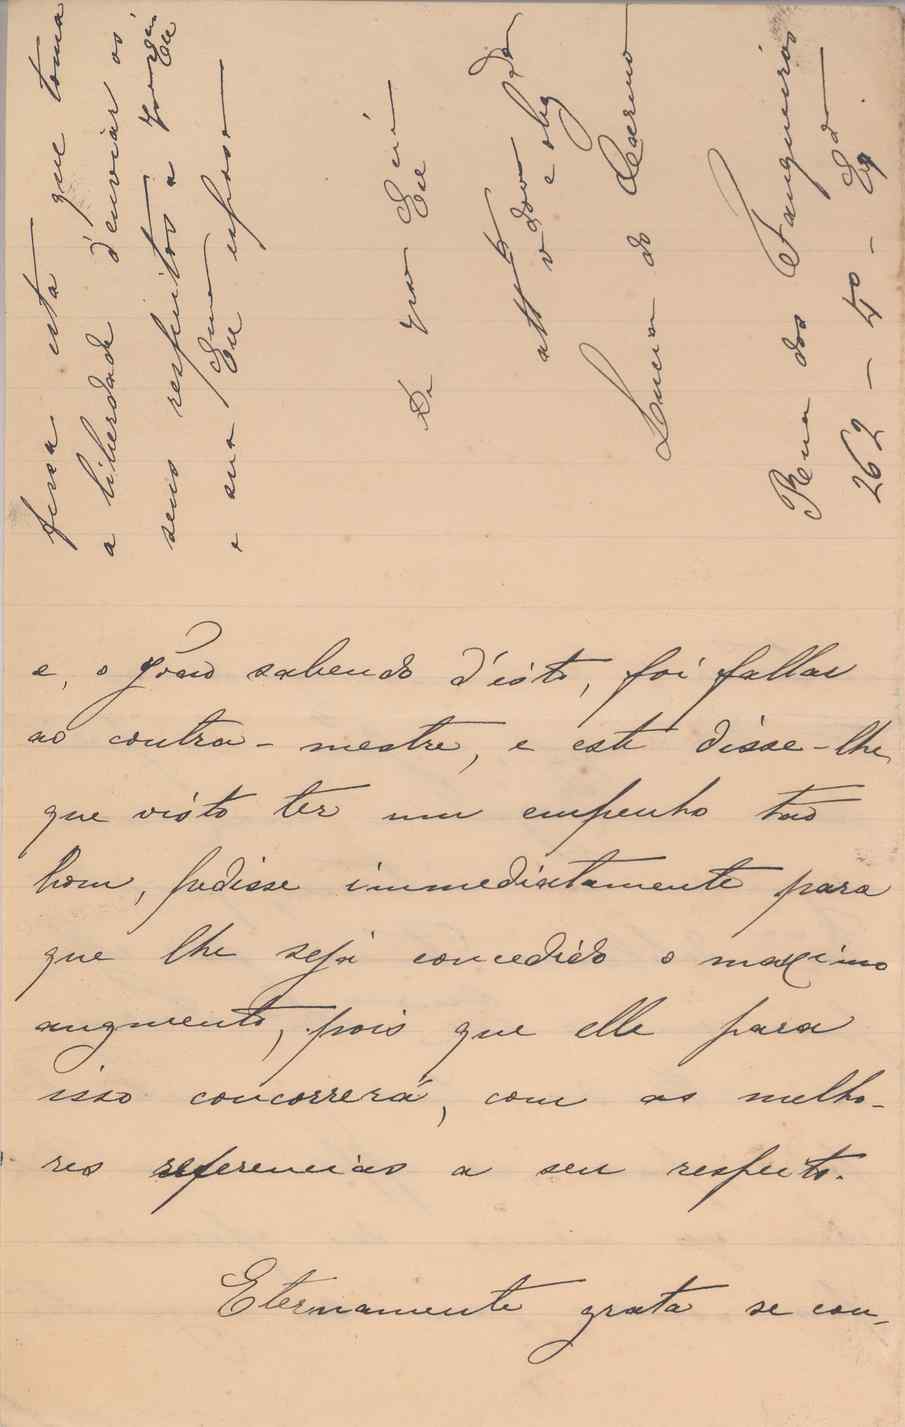 e, o João sabendo d'isto, foi fallar
ao contra-mestre, e este disse-lhe,
que visto ter um empenho tão
bom, pedisse immediatamente para
que lhe seja concedido o maximo
augmento, pois que elle para
isso concorrerá, com as melho-
res referencias a seu respeito.
Eternamente grata se con-
fessa esta que toma
a liberdade d'enviar os
seus respeitos a Vossa Excia
e sua Exma esposa
De Vossa Excia
atta vdora e obgda
Lucia do Carmo
Rua dos Fanqueiros
262 - 4o - Eqdo